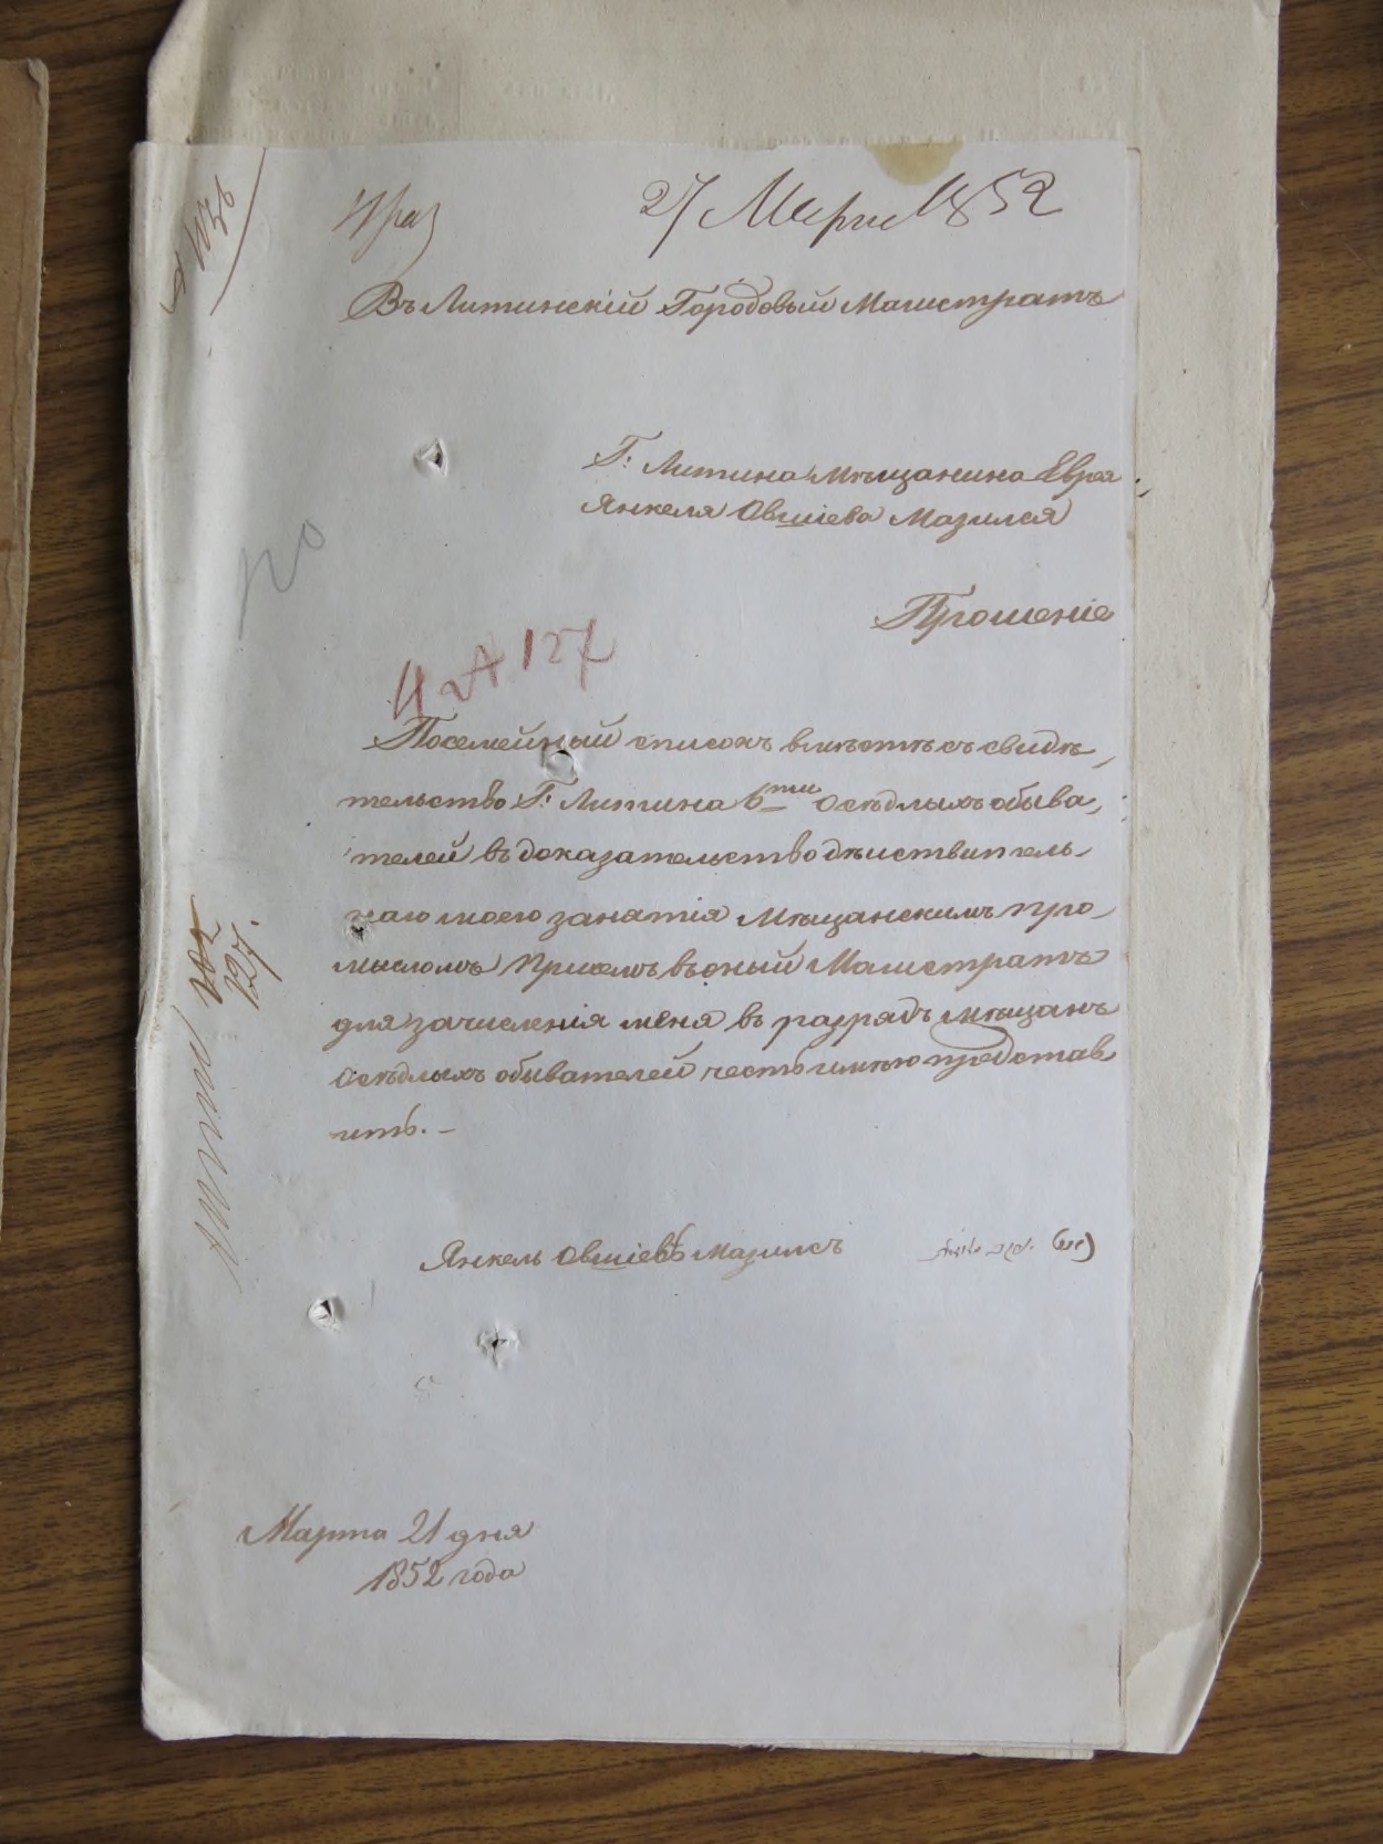 27 Марта 1852
Въ Литинскій Городовый Магистратъ
Г: Литина Мѣщанина Еврея
Янкеля Овшіева Мазился
Прошеніе
127
Посемейный списокъ вмѣстѣ съ свидѣ
тельство Г: Литина 6ти осѣдлыхъ обыва,
телей въ доказательство дѣиствитель-
наго моего занятія Мѣщанскимъ про-
мысломъ присемъ въ оный Магистратъ
для зачисленія меня въ разрядъ мѣщанъ
осѣдлыхъ обывателей честь имѣю представ
ить. -
Янкель Овшіевъ Мазилсъ
Марта 21 дня
1852 года